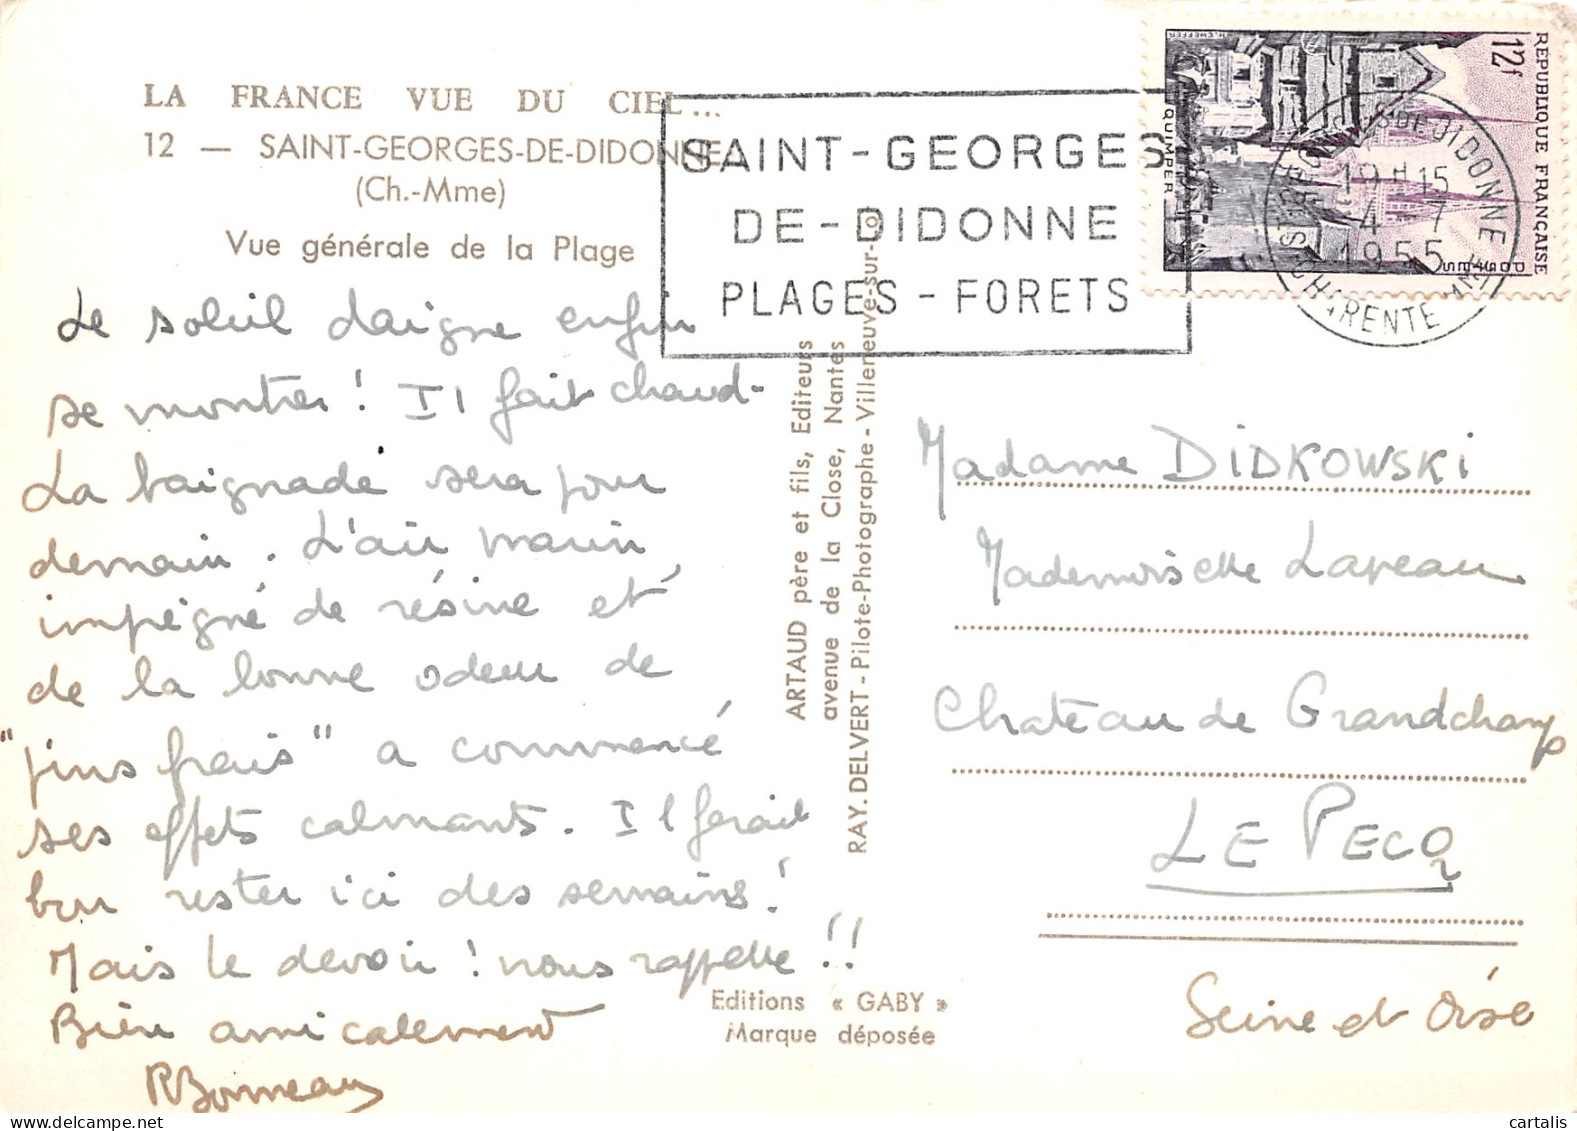 LA FRANCE VUE DU CIEL...
12 — SAINT-GEORGES-DE-DIDONNE
(Ch.-Mme)
Vue générale de la Plage
Le soleil daigne enfin
se montrer ! Il fait chaud -
La baignade sera pour
demain. L'air marin,
impégné de résine et
de la bonne odeur de
"pins frais" a commencé
ses effets calmants. Il ferait
bon rester ici des semaines !
Mais le devoir ! nous rappelle !!
Bien amicalement
RBonneau
SAINT-GEORGES
DE-DIDONNE
PLAGES - FORETS
REPUBLIQUE FRANÇAISE
12f
POSTES
QUIMPER
H. CHEFFER
ST GEORGES DE DIDONNE
19H15
4 - 7
1955
CHARENTE MME
ARTAUD père et fils, Editeurs
avenue de la Close, Nantes
RAY. DELVERT - Pilote-Photographe - Villeneuve-sur-Lot
Editions « GABY »
Marque déposée
Madame DIDKOWSKI
Mademoiselle Laveau
Château de Grandchamp
LE PECQ
Seine et Oise
cartalis